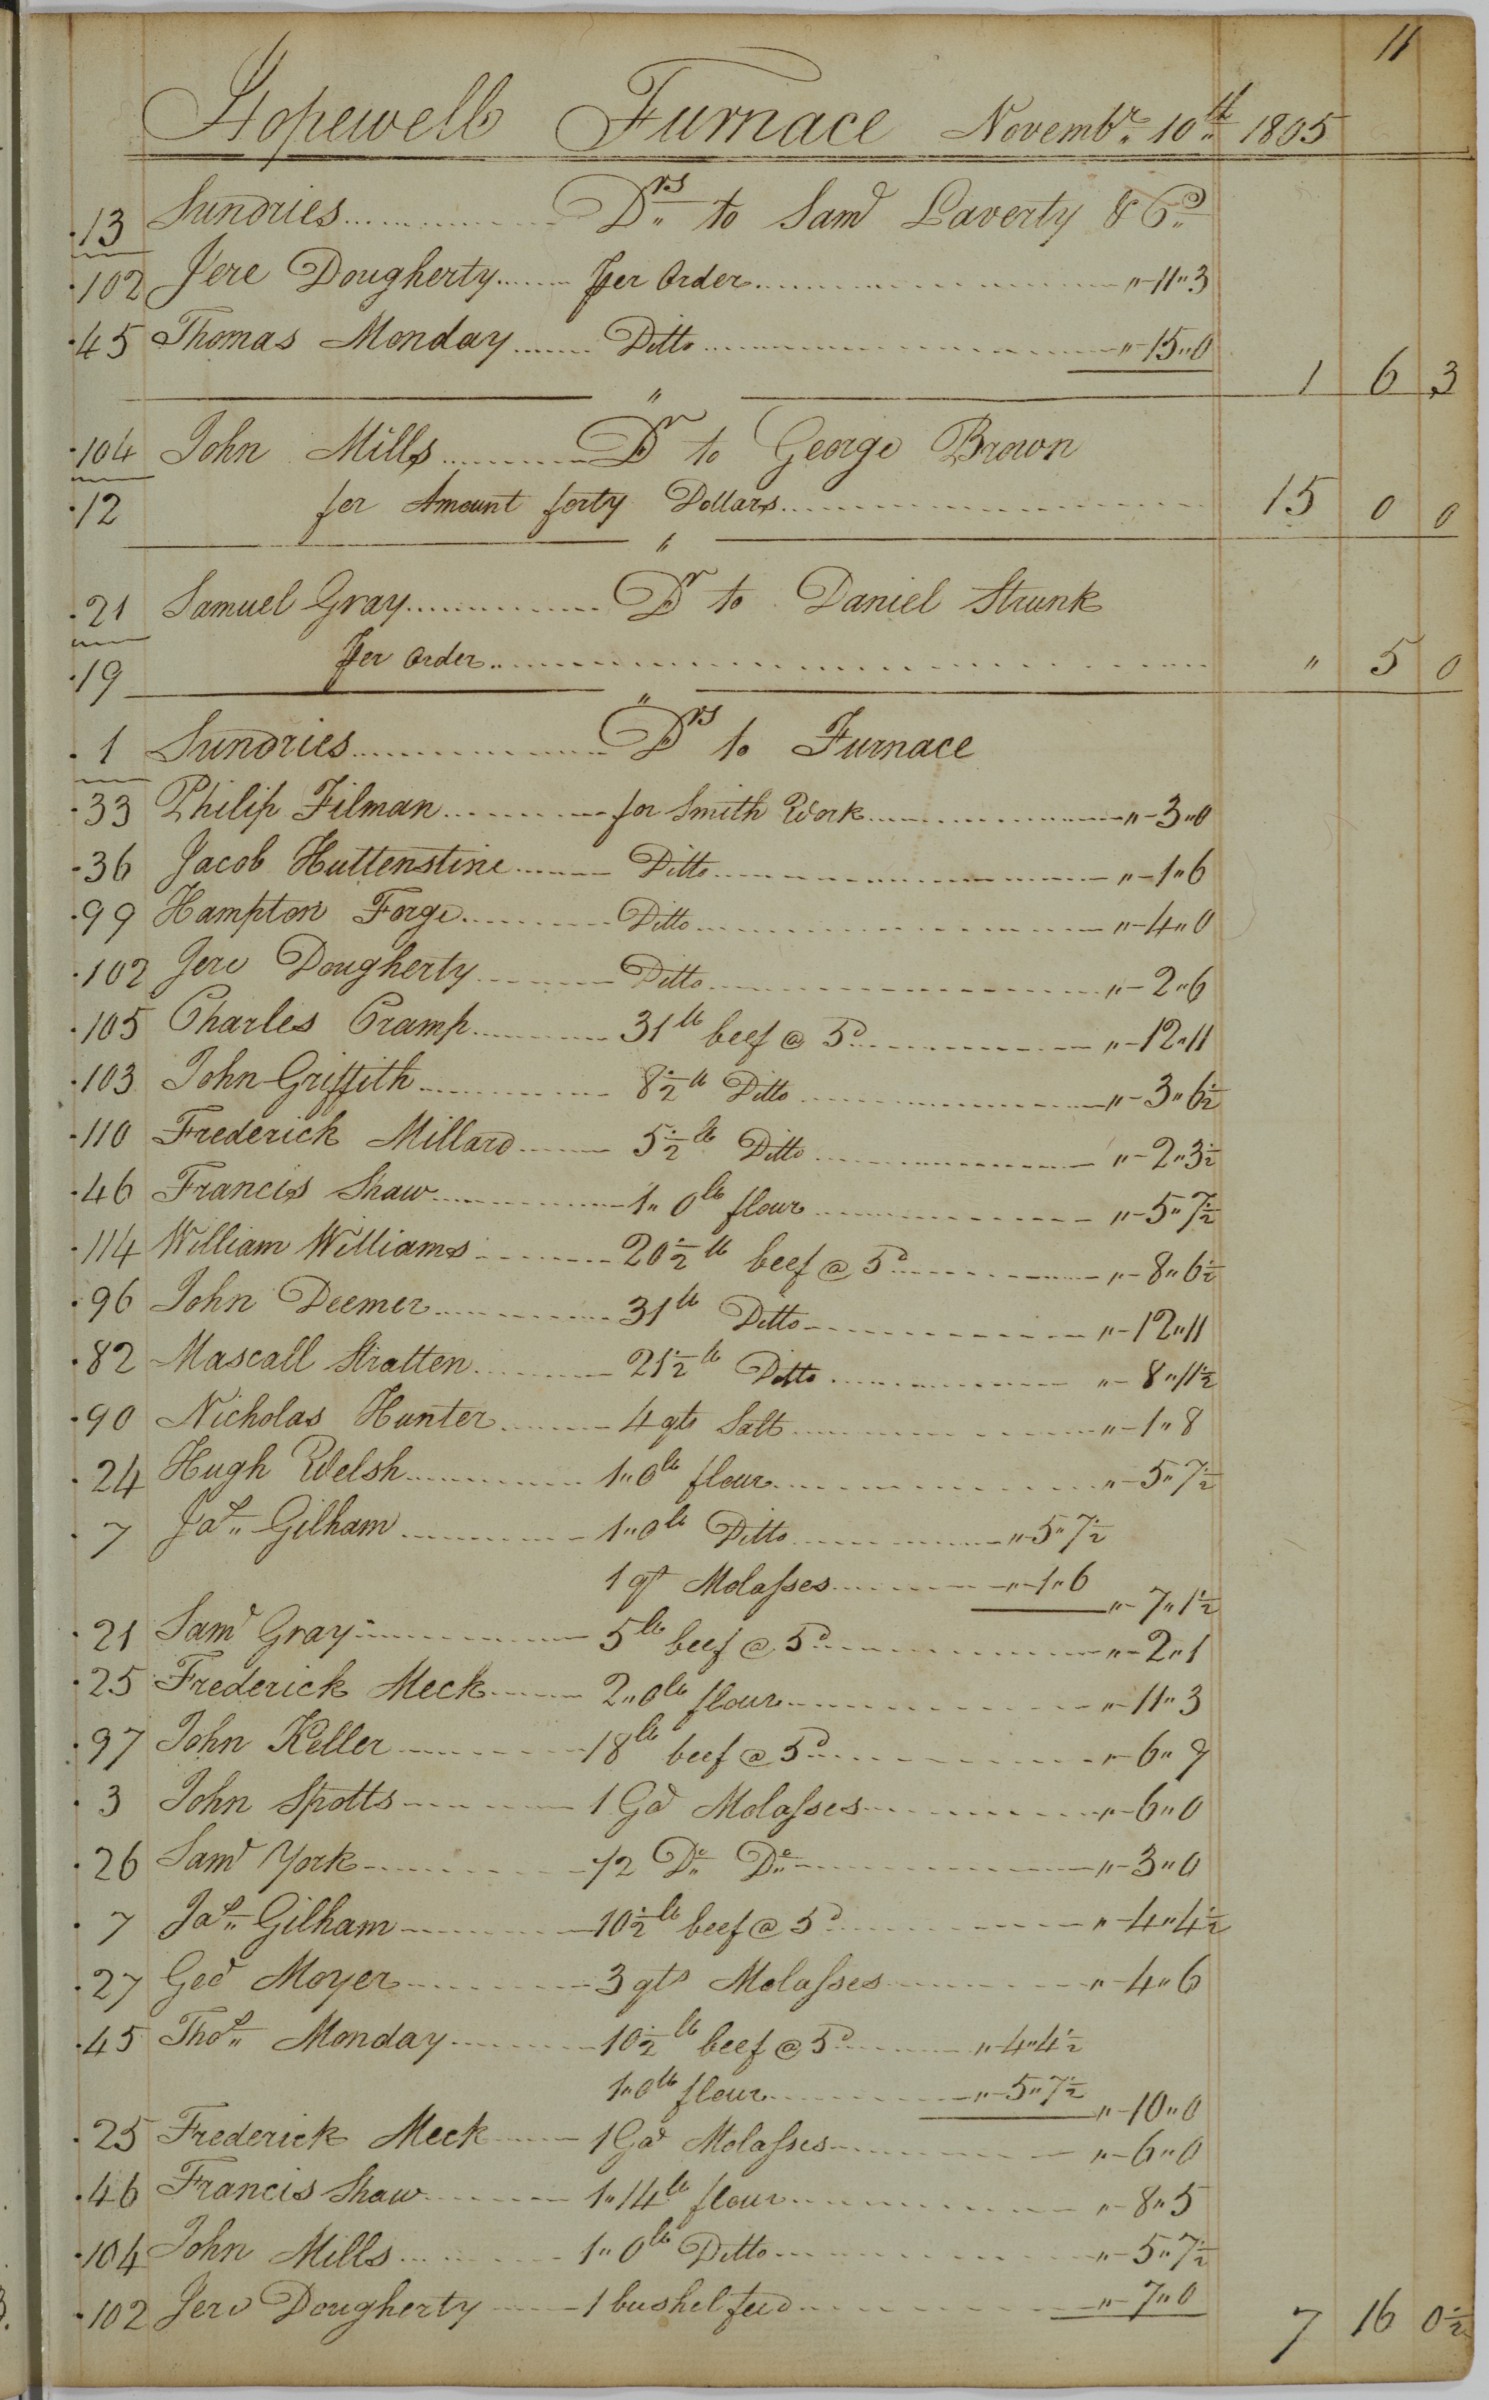 11
Hopewell Furnace Novembr. 10th 1805
13 Sundries Drs to Samd Laverty & Co
102 Jere Dougherty per Order "-11"3
45 Thomas Monday Ditto "-15"0
1 6 3
104 John Mills Dr to George Brown
12 for Amount forty Dollars 15 0 0
21 Samuel Gray Dr to Daniel Strunk
19 per Order " 5 0
1 Sundries Drs to Furnace
33 Philip Filman for Smith Work "-3"0
36 Jacob Huttenstine Ditto "-1"6
99 Hampton Forge Ditto "-4"0
102 Jere Dougherty Ditto "-2"6
105 Charles Cramp 31 lb beef @ 5d "-12"11
103 John Griffith 8½ lb Ditto "-3"6½
110 Frederick Millard 5½ lb Ditto "-2"3½
46 Francis Shaw 1"0 lb flour "-5"7½
114 William Williams 20½ lb beef @ 5d "-8"6½
96 John Deemer 31 lb Ditto "-12"11
82 Mascall Stratten 21½ lb Ditto "-8"11½
90 Nicholas Hunter 4 qts Salt "-1"8
24 Hugh Welsh 1"0 lb flour "-5"7½
7 Jas. Gilham 1"0 lb Ditto "-5"7½
1 qt Molasses "-1"6 "-7"1½
21 Samd Gray 5 lb beef @ 5d "-2"1
25 Frederick Meck 2"0 lb flour "-11"3
97 John Keller 18 lb beef @ 5d "-6"9
3 John Spotts 1 Gad Molasses "-6"0
26 Samd York ½ Do Do "-3"0
7 Jas. Gilham 10½ lb beef @ 5d "-4"4½
27 Geo Moyer 3 qts Molasses "-4"6
45 Thos. Monday 10½ lb beef @ 5d "-4"4½
1"0 lb flour "-5"7½ "-10"0
25 Frederick Meck 1 Gad Molasses "-6"0
46 Francis Shaw 1"14 lb flour "-8"5
104 John Mills 1"0 lb Ditto "-5"7½
102 Jere Dougherty 1 bushel feed "-7"0
7 16 0½